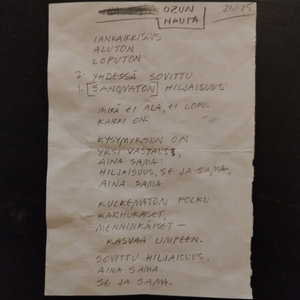 OZUN
HAUTA
21/1/25
IANKAIKKISUUS
ALUTON
LOPUTON
2. YHDESSÄ SOVITTU
1. [SANOMATON] HILJAISUUS
MIKÄ EI ALA, EI LOPU.
KAIKKI ON.
KYSYMYKSIIN ON
YKSI VASTAUS,
AINA SAMA:
HILJAISUUS, SE JA SAMA,
AINA SAMA.
KULKEMATON POLKU
– KARHUKAISET,
MENNINKÄISET –
KASVAA UMPEEN.
SOVITTU HILJAISUUS,
AINA SAMA.
SE JA SAMA.